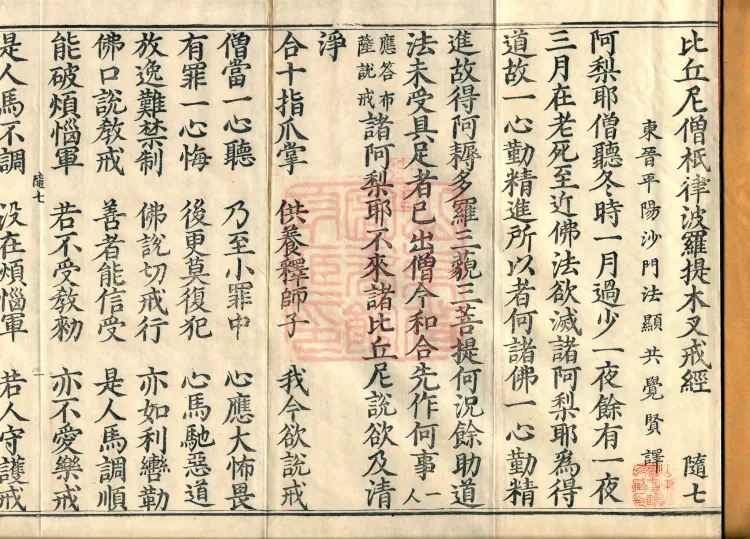 比丘尼僧祇律波羅提木叉戒經 隨七
東晉平陽沙門法顯共覺賢譯
阿梨耶僧聽冬時一月過少一夜餘有一夜
三月在老死至近佛法欲滅諸阿梨耶爲得
道故一心勤精進所以者何諸佛一心勤精
進故得阿耨多羅三藐三菩提何況餘助道
法未受具足者已出僧今和合先作何事一人
應答布薩說戒諸阿梨耶不來諸比丘尼說欲及清
淨
合十指爪掌 供養釋師子 我今欲說戒
僧當一心聽 乃至小罪中 心應大怖畏
有罪一心悔 後更莫復犯 心馬馳惡道
放逸難禁制 佛說切戒行 亦如利轡勒
佛口說教戒 善者能信受 是人馬調順
能破煩惱軍 若不受教勑 亦不愛樂戒
隨七 一
是人馬不調 沒在煩惱軍 若人守護戒